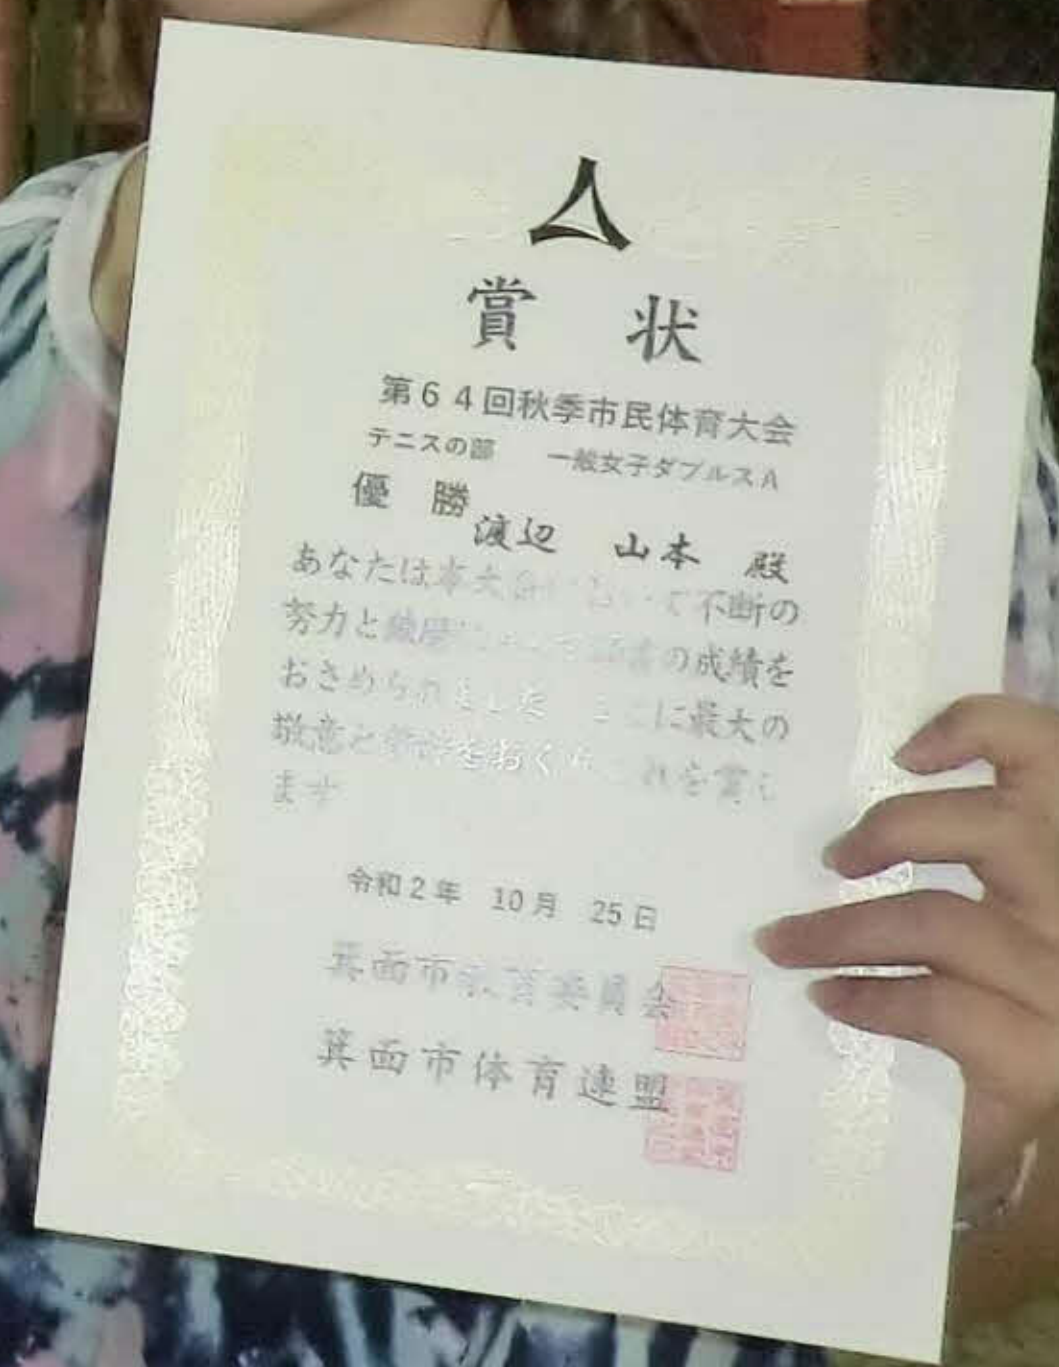 賞 状
第64回秋季市民体育大会
テニスの部 一般女子ダブルスA
優 勝
渡辺 山本 殿
あなたは本大会において不断の
努力と の成績を
おさめられました ここに最大の
敬意と をおくり これを賞し
ます
令和2年 10月 25日
箕面市教育委員会
箕面市体育連盟